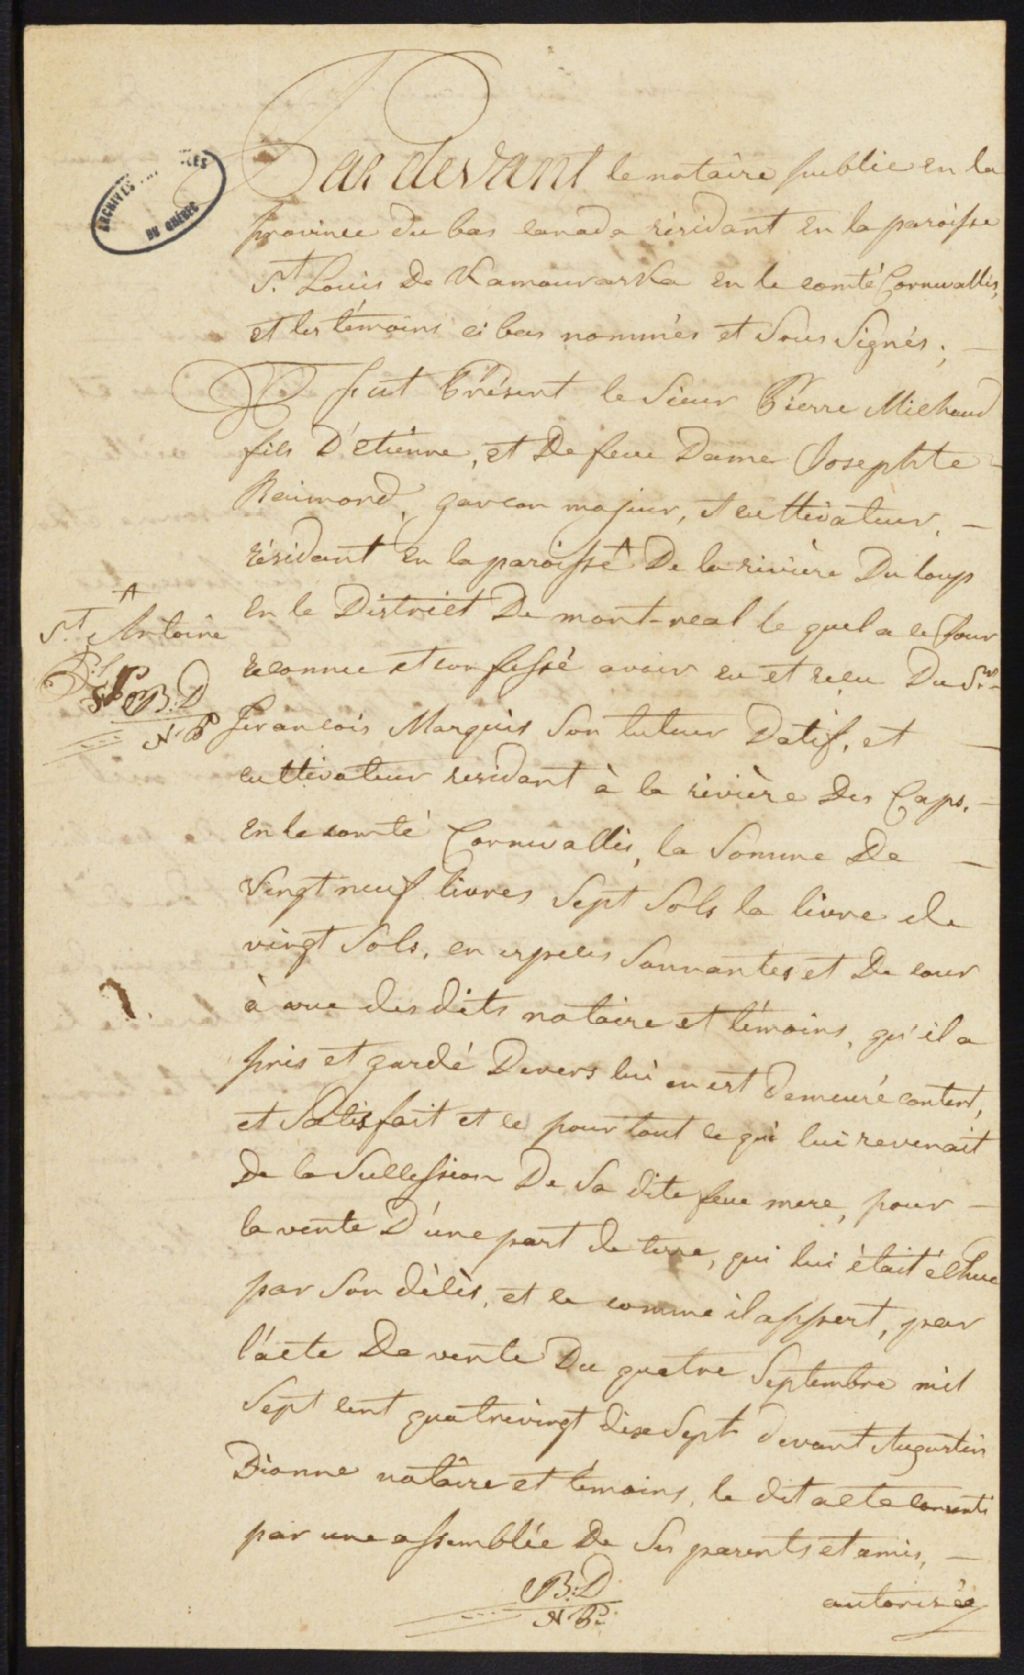 Par devant le notaire public en la
province du bas canada résidant en la paroisse
St. Louis De Kamouraska en le comté Cornwallis,
et les témoins ci bas nommés et Sous Signés; —
fut Présent le Sieur Pierre Michaud
fils D'etienne, et De feue Dame Josephte
Raimond, garcon majeur, et cultivateur, —
résidant en la paroisse ^ De la rivière Du loup
En le District De mont-real le quel a ce Jour
^
St. Antoine
B:D
N:P
reconnu et confessé avoir eu et recu Du Sr.
francois Marquis Son tuteur Datif, et —
cultivateur residant à la rivière Des Caps, —
En le comté Cornwallis, la Somme De —
Vingt neuf livres Sept Sols la livre de
vingt Sols, en especes Sonnantes et De cour
à vue des dits notaire et témoins, qu'il a
pris et gardé Devers lui en est Demeuré content,
et Satisfait et ce pour tout ce qui lui revenait
De la Succession De Sa dite feue mere, pour —
la vente D'une part de terre, qui lui était échue
par Son décès, et ce comme il appert, par
l'acte De vente Du quatre Septembre mil
Sept cent quatrevingt dixe Sept devant Augustin
Dionne notaire et témoins, le dit acte consenti
par une assemblée De Ses parents et amis, —
B:D
N:P:
autorisée
ARCHIVES
DE QUÉBEC